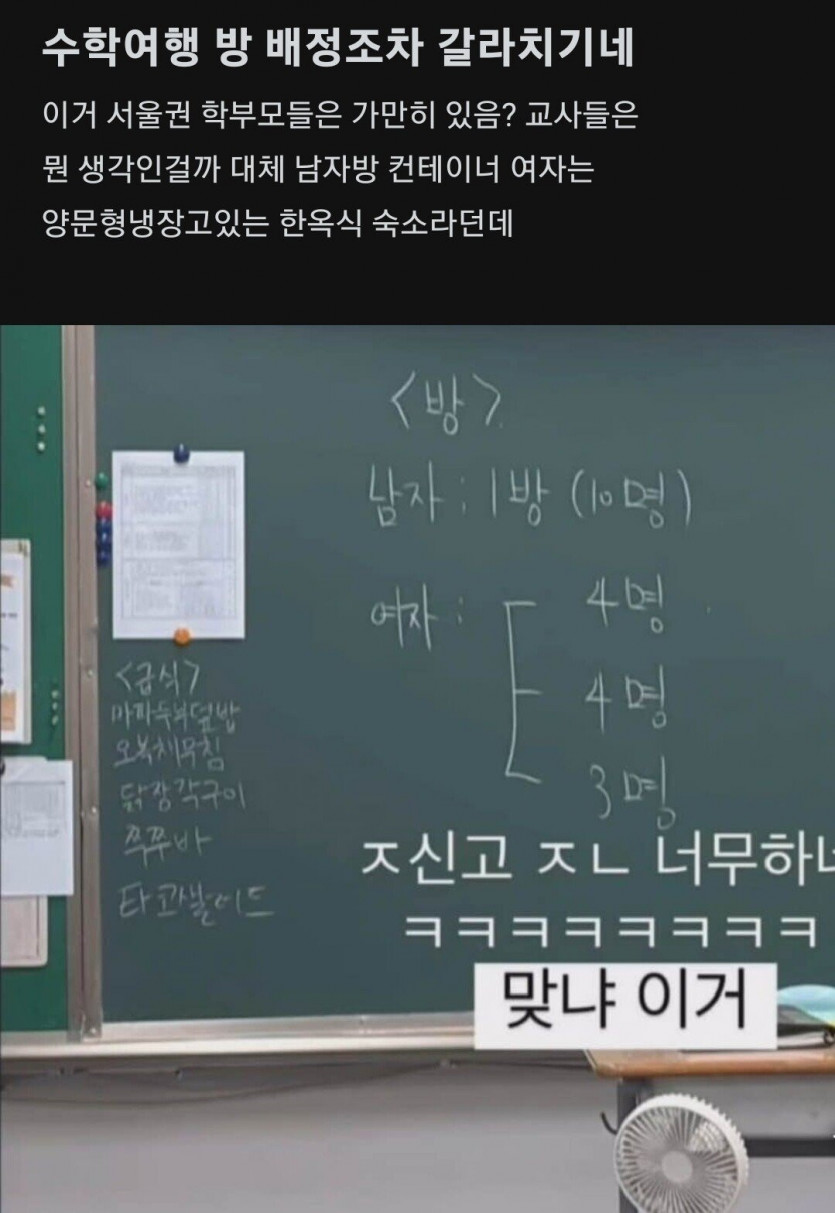 수학여행 방 배정조차 갈라치기네
이거 서울권 학부모들은 가만히 있음? 교사들은
뭔 생각인걸까 대체 남자방 컨테이너 여자는
양문형냉장고있는 한옥식 숙소라던데
<방>
남자 : 1방 (10명)
여자 : 4명
4명
3명
<급식>
마파두부덮밥
오복채무침
닭장각구이
쭉쭈바
ㅈ신고 ㅈㄴ 너무하네
ㅋㅋㅋㅋㅋㅋㅋㅋㅋ
맞냐 이거